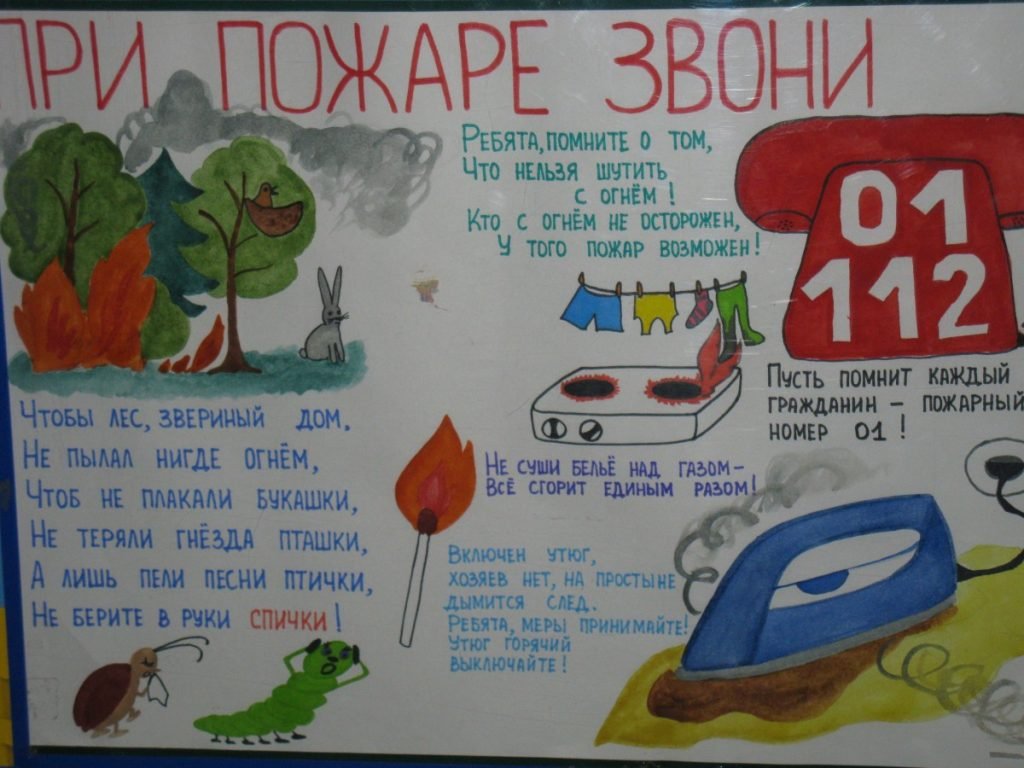 ПРИ ПОЖАРЕ ЗВОНИ
Ребята, помните о том,
Что нельзя шутить
с огнём!
Кто с огнём не осторожен,
У того пожар возможен!
01
112
Пусть помнит каждый
гражданин – пожарный
номер 01!
Чтобы лес, звериный дом,
Не пылал нигде огнём,
Чтоб не плакали букашки,
Не теряли гнёзда пташки,
А лишь пели песни птички,
Не берите в руки спички!
Не суши бельё над газом–
Всё сгорит единым разом!
Включен утюг,
хозяев нет, на простыне
дымится след.
Ребята, меры принимайте!
Утюг горячий
выключайте!